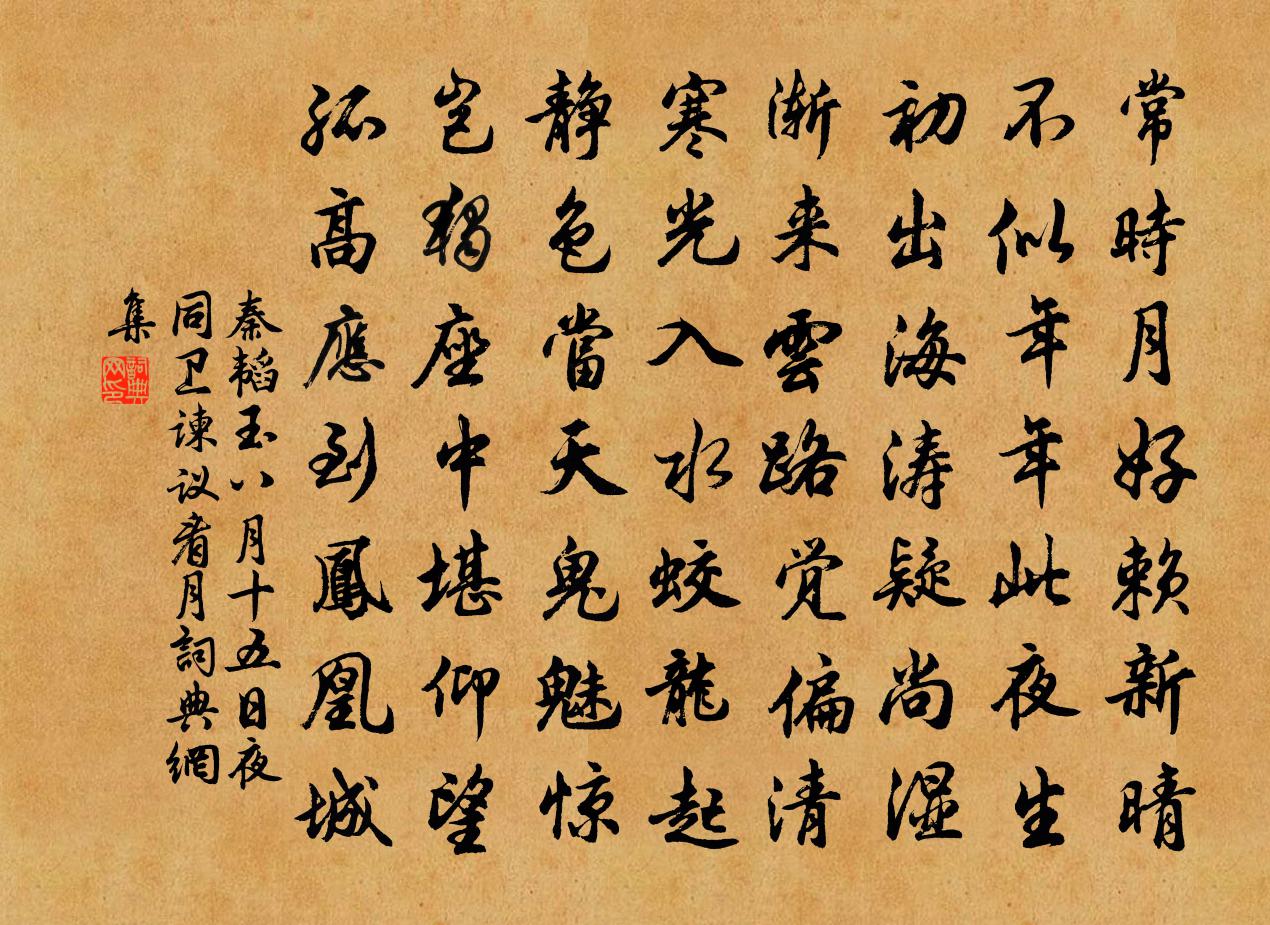 常時月好賴新晴
不似年年此夜生
初出海涛疑尚湿
渐来雲路覚偏清
寒光入水蛟龍起
静色當天鬼魅惊
岂獨座中堪仰望
孤高應到鳳凰城
秦韬玉八月十五日夜
同卫谏议看月詞典網
集
詞典
网印